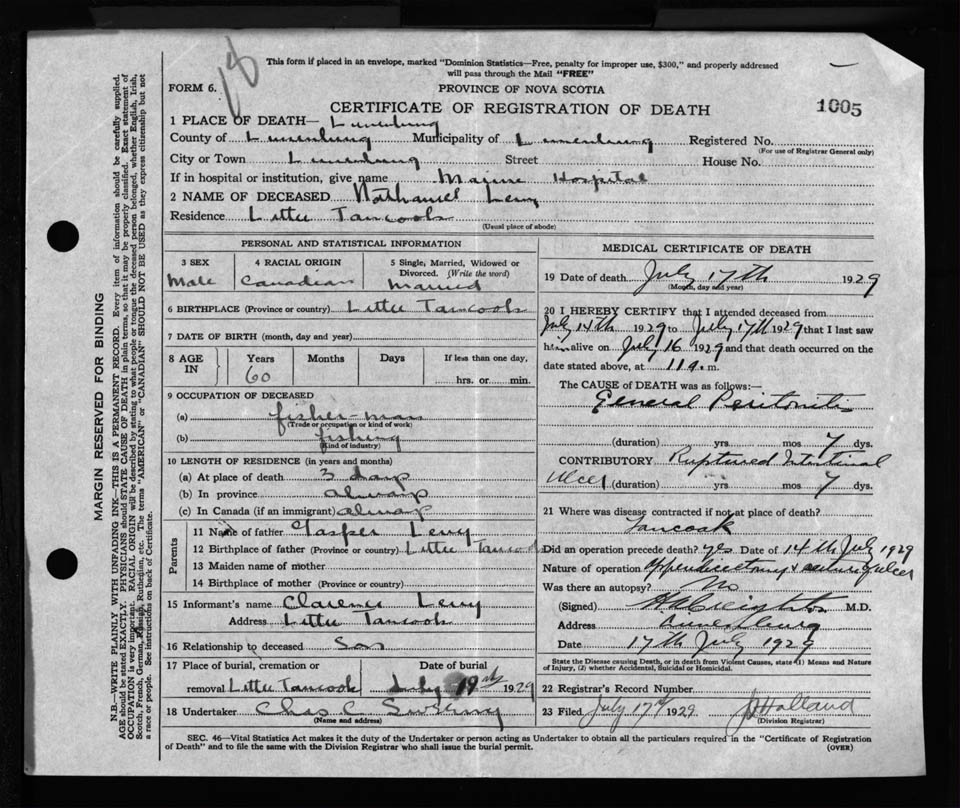 18
This form if placed in an envelope, marked "Dominion Statistics—Free, penalty for improper use, $300," and properly addressed
will pass through the Mail "FREE"
FORM 6.
PROVINCE OF NOVA SCOTIA
CERTIFICATE OF REGISTRATION OF DEATH
1005
1 PLACE OF DEATH— Lunenburg
County of Lunenburg Municipality of Lunenburg Registered No.
(For use of Registrar General only)
City or Town Lunenburg Street House No.
If in hospital or institution, give name Marine Hospital
2 NAME OF DECEASED Nathaniel Levy
Residence Little Tancook
(Usual place of abode)
MARGIN RESERVED FOR BINDING
N.B.—WRITE PLAINLY WITH UNFADING INK—THIS IS A PERMANENT RECORD. Every item of information should be carefully supplied.
AGE should be stated EXACTLY. PHYSICIANS should STATE CAUSE OF DEATH in plain terms, so that it may be properly classified. Exact statement of
OCCUPATION is very important. RACIAL ORIGIN will be described by stating to what people or tongue the deceased person belonged, whether English, Irish,
Scotch, French, German, Russian, Ruthenian, etc. The terms "AMERICAN" or "CANADIAN" SHOULD NOT BE USED as they express citizenship but not
a race or people. See instructions on back of Certificate.
PERSONAL AND STATISTICAL INFORMATION
3 SEX
Male
4 RACIAL ORIGIN
Canadian
5 Single, Married, Widowed or
Divorced. (Write the word)
Married
6 BIRTHPLACE (Province or country) Little Tancook
7 DATE OF BIRTH (month, day and year)
8 AGE IN
Years Months Days If less than one day,
60 hrs. or min.
9 OCCUPATION OF DECEASED
(a) fisher-man
(Trade or occupation or kind of work)
(b) fishing
(Kind of industry)
10 LENGTH OF RESIDENCE (in years and months)
(a) At place of death 3 days
(b) In province always
(c) In Canada (if an immigrant) always
Parents
11 Name of father Casper Levy
12 Birthplace of father (Province or country) Little Tancook
13 Maiden name of mother
14 Birthplace of mother (Province or country)
15 Informant's name Clarence Levy
Address Little Tancook
16 Relationship to deceased Son
17 Place of burial, cremation or Date of burial
removal Little Tancook July 19th 1929
18 Undertaker Chas C
(Name and address)
MEDICAL CERTIFICATE OF DEATH
19 Date of death July 17th 1929
(Month, day and year)
20 I HEREBY CERTIFY that I attended deceased from
July 14th 1929 to July 17th 1929 that I last saw
him alive on July 16 1929 and that death occurred on the
date stated above, at 11 a.m.
The CAUSE of DEATH was as follows:—
General Peritonitis
(duration) yrs mos 7 dys.
CONTRIBUTORY Ruptured Intestinal
Ulcer (duration) yrs mos 7 dys.
21 Where was disease contracted if not at place of death?
Tancook
Did an operation precede death? yes Date of 14th July 1929
Nature of operation Appendicectomy & suture of ulcer
Was there an autopsy? No
(Signed) Creighton M.D.
Address Lunenburg
Date 17th July 1929
State the Disease causing Death, or in death from Violent Causes, state (1) Means and Nature
of Injury, (2) whether Accidental, Suicidal or Homicidal.
22 Registrar's Record Number
23 Filed July 17th 1929 Holland
(Division Registrar)
SEC. 46—Vital Statistics Act makes it the duty of the Undertaker or person acting as Undertaker to obtain all the particulars required in the "Certificate of Registration
of Death" and to file the same with the Division Registrar who shall issue the burial permit.
(OVER)